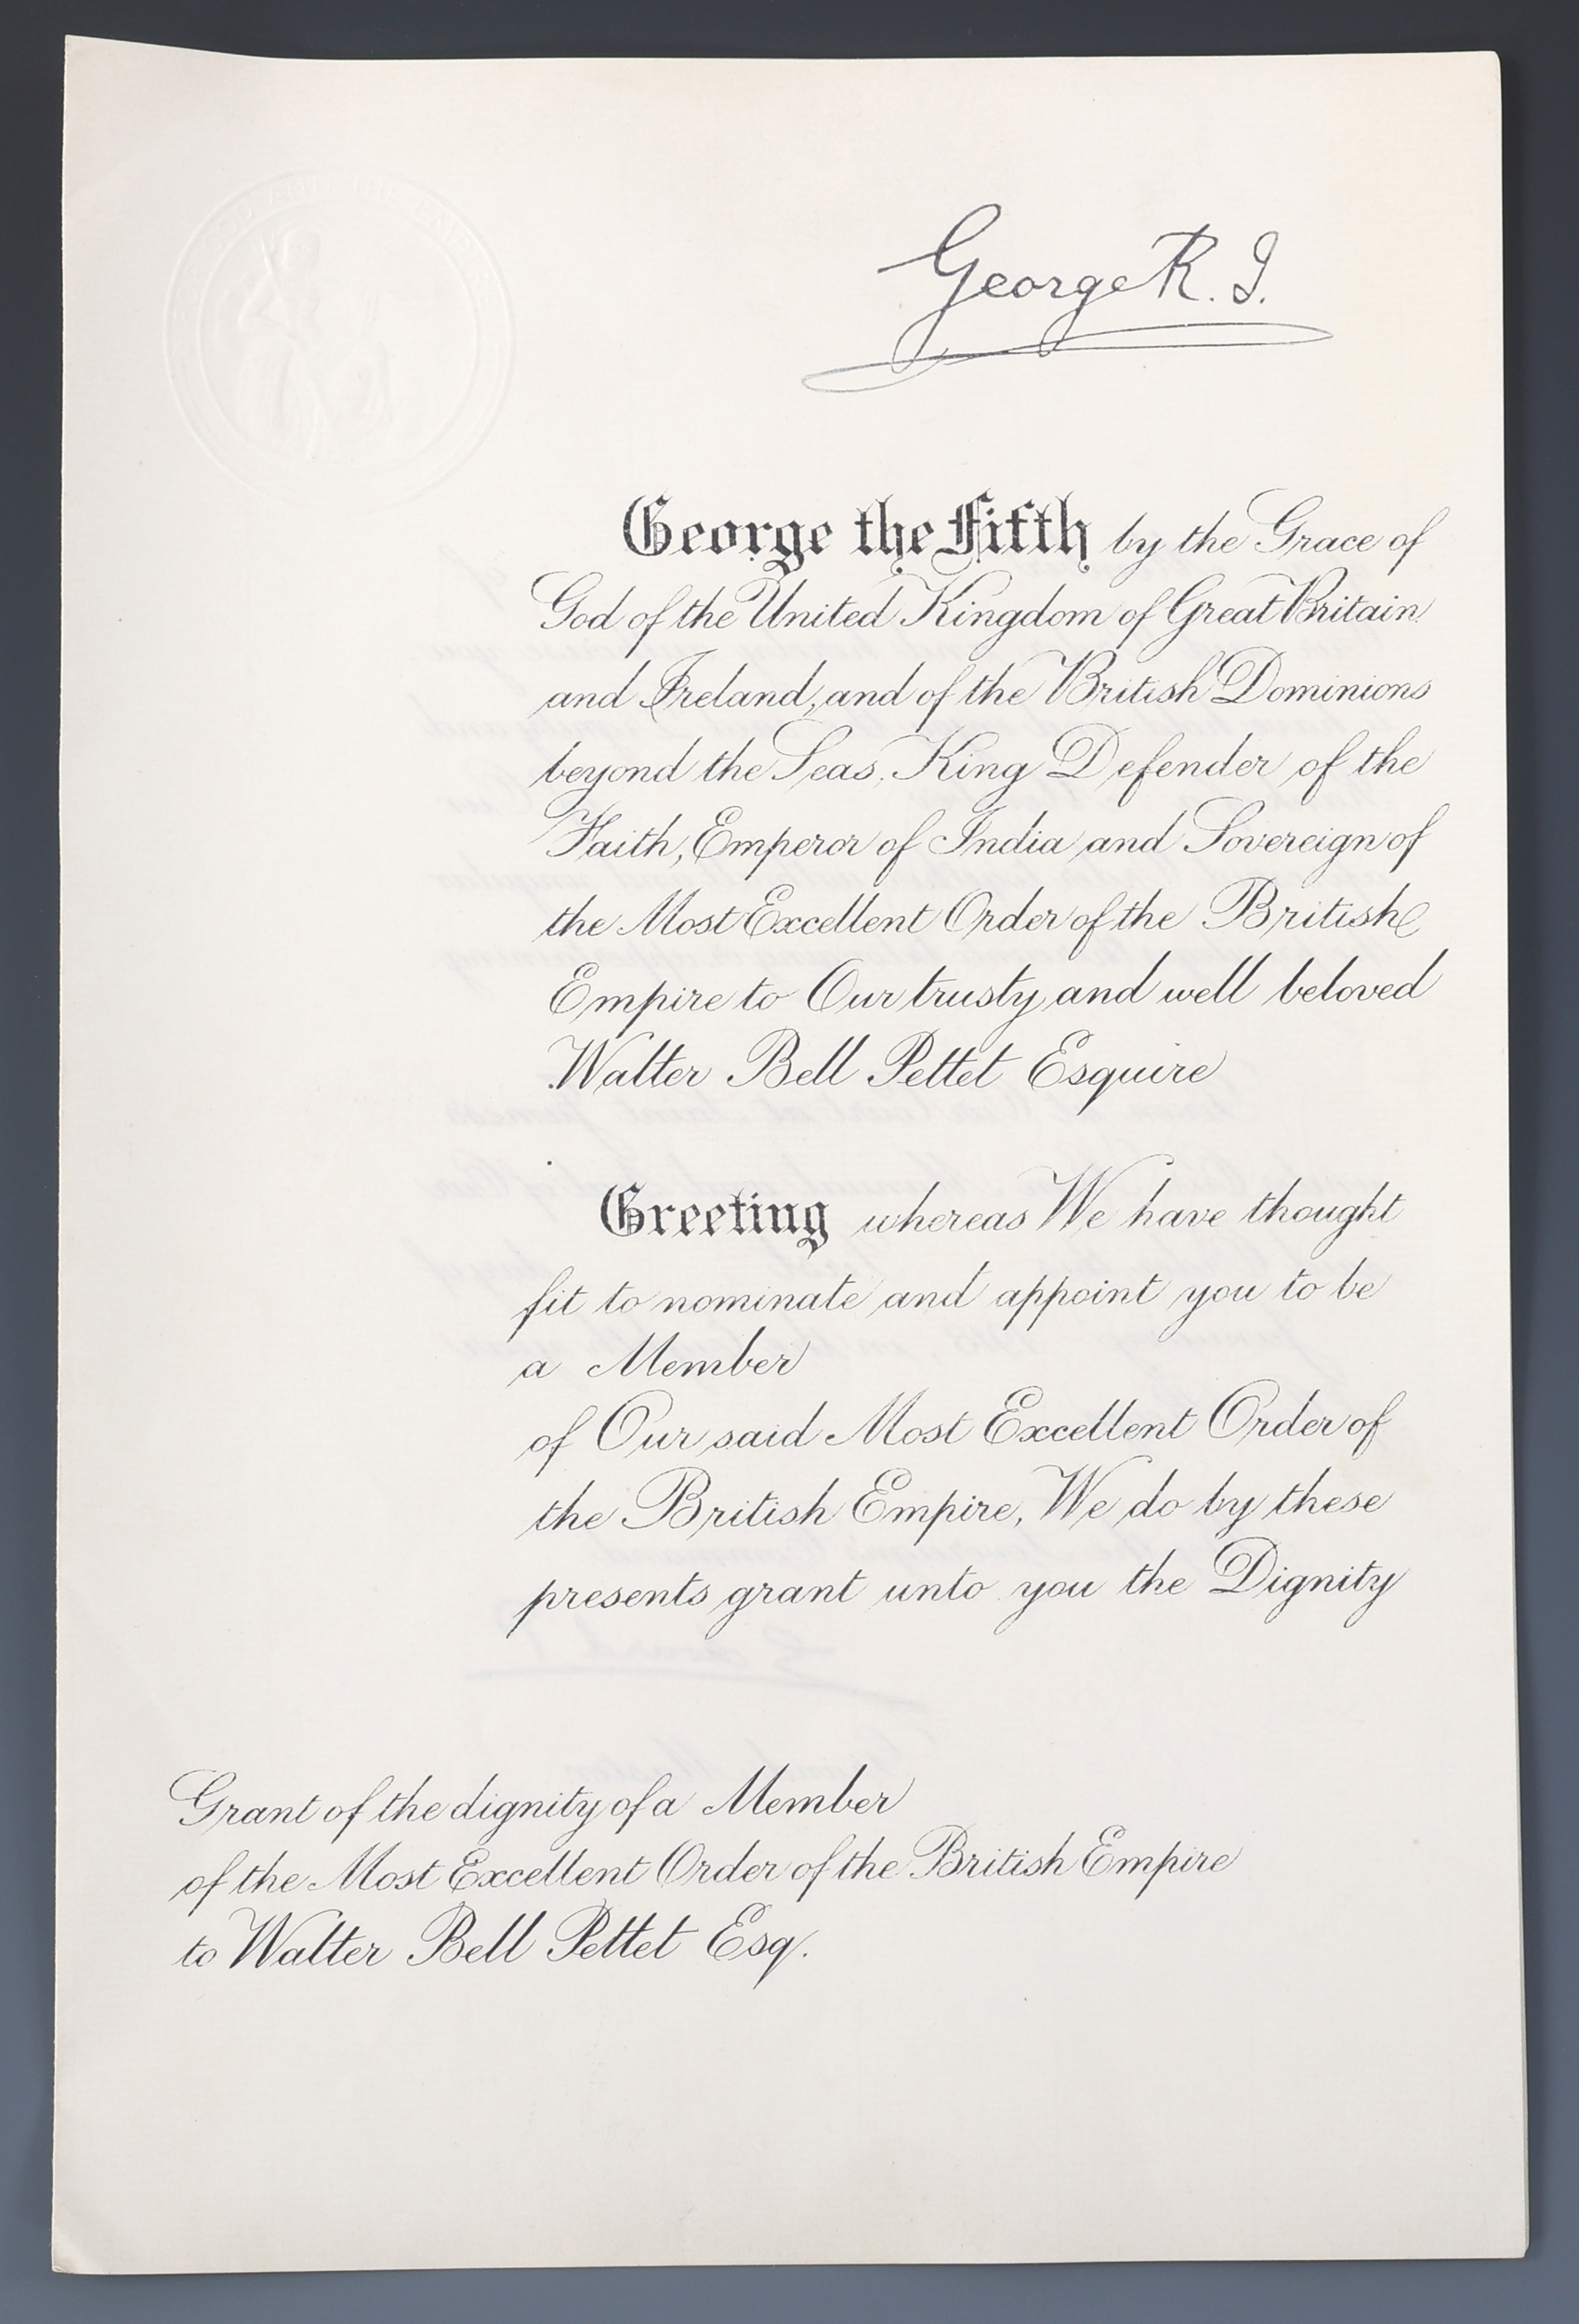 George R. I.
George the Fifth by the Grace of
God of the United Kingdom of Great Britain
and Ireland, and of the British Dominions
beyond the Seas, King Defender of the
Faith, Emperor of India and Sovereign of
the Most Excellent Order of the British
Empire to Our trusty and well beloved
Walter Bell Pettet Esquire
Greeting whereas We have thought
fit to nominate and appoint you to be
a Member
of Our said Most Excellent Order of
the British Empire, We do by these
presents grant unto you the Dignity
Grant of the dignity of a Member
of the Most Excellent Order of the British Empire
to Walter Bell Pettet Esq.